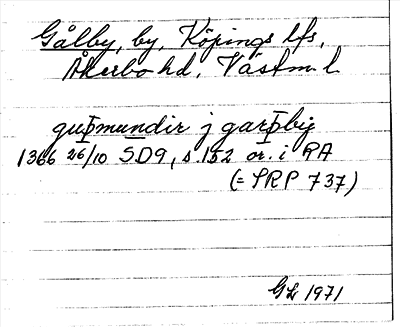 Gålby, by, Köpings lfs,
Åkerbo hd, Västm. l.
guþmundir j garþbij
1366 26/10 SD9, s. 152 or. i RA
(= SRP 737)
GL 1971